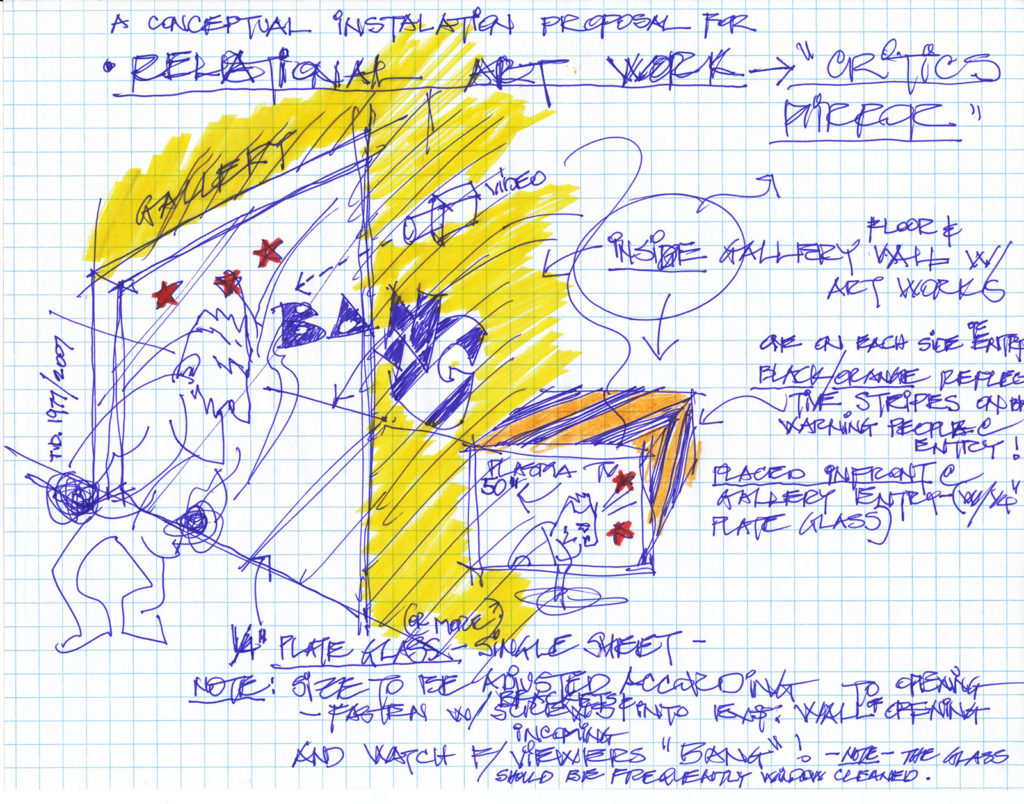 A CONCEPTUAL INSTALATION PROPOSAL FOR
• RELATIONAL ART WORK → "CRITICS
MIRROR"
GALLERY
VIDEO
INSIDE GALLERY FLOOR &
WALL W/
ART WORKS
BANG
T.D. 1977/2007
ONE ON EACH SIDE OF ENTRY
BLACK/ORANGE REFLEC
TIVE STRIPES ON
WARNING PEOPLE @
ENTRY!
PLASMA TV
50"
PLACED INFRONT @
GALLERY ENTRY (W/ 1/4"
PLATE GLASS)
(OR MORE)
1/4" PLATE GLASS - SINGLE SHEET -
NOTE: SIZE TO BE ADJUSTED ACCORDING TO OPENING
- FASTEN W/ BRACKETS & SCREWS INTO WALL OPENING
AND WATCH F/ INCOMING VIEWERS "BANG"! - NOTE - THE GLASS
SHOULD BE FREQUENTLY WINDOW CLEANED.